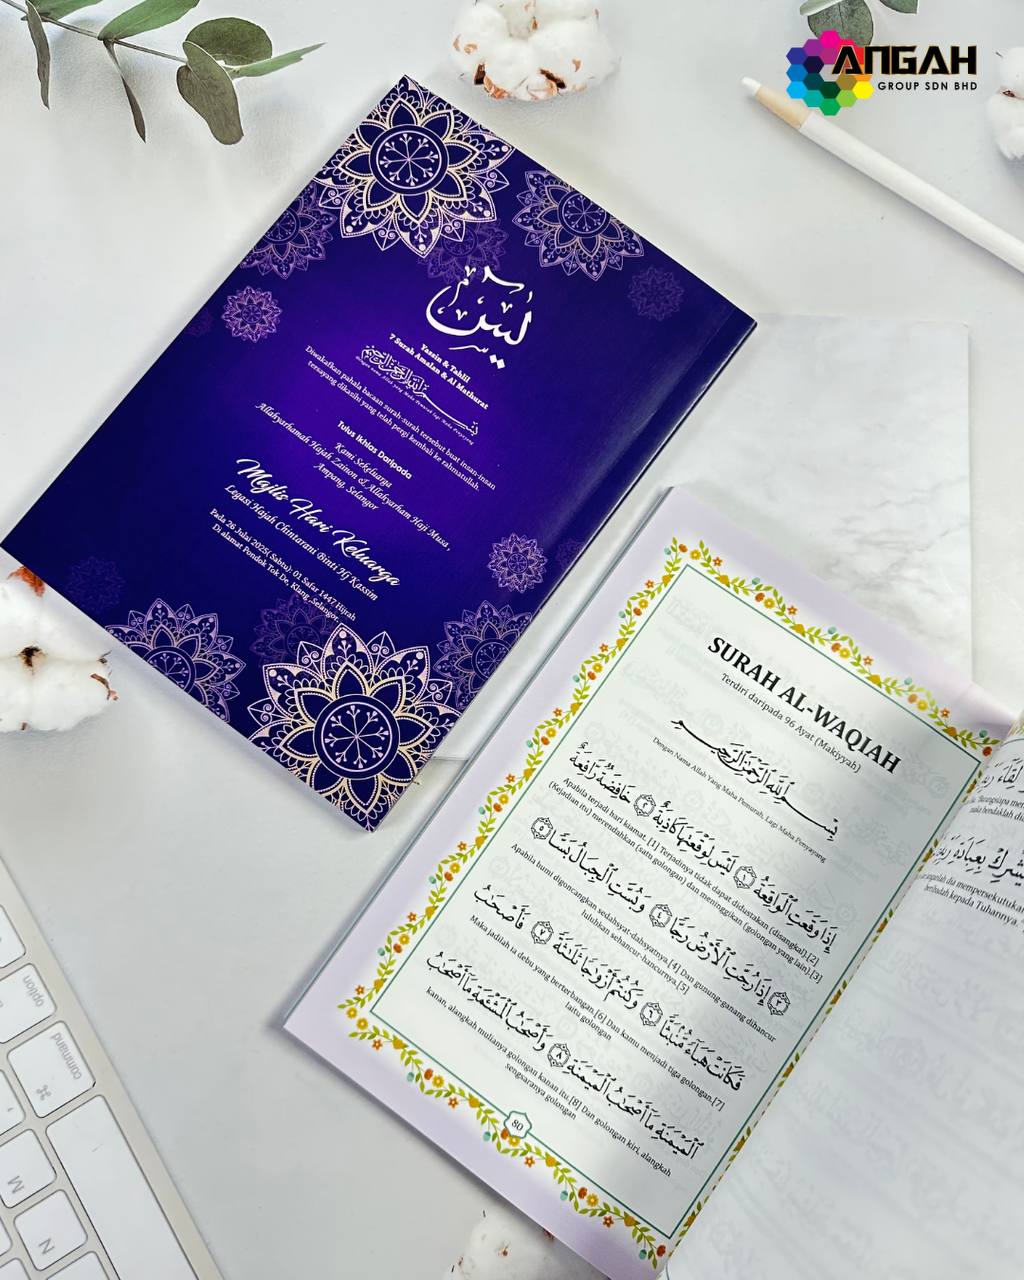 ANGAH
GROUP SDN BHD
يٰسٓ
Yassin & Tahlil
7 Surah Amalan & Al Mathurat
بِسْمِ اللَّهِ الرَّحْمَٰنِ الرَّحِيمِ
dengan nama Allah yang Maha Pemurah lagi Maha Penyayang
Diwakafkan pahala bacaan surah-surah tersebut buat insan-insan
tersayang dikasihi yang telah pergi kembali ke rahmatullah.
Tulus Ikhlas Daripada
Kami Sekeluarga
Allahyarhamah Hajah Zainon & Allahyarham Haji Musa,
Ampang, Selangor
Majlis Hari Keluarga
Legasi Hajah Chintarani Binti Hj Kassim
Pada 26 Julai 2025( Sabtu): 01 Safar 1447 Hijrah
Di alamat Pondok Tok De, Klang ,Selangor.
SURAH AL-WAQIAH
Terdiri daripada 96 Ayat (Makiyyah)
بِسْمِ اللَّهِ الرَّحْمَٰنِ الرَّحِيمِ
Dengan Nama Allah Yang Maha Pemurah, Lagi Maha Penyayang
إِذَا وَقَعَتِ ٱلْوَاقِعَةُ ١ لَيْسَ لِوَقْعَتِهَا كَاذِبَةٌ ٢ خَافِضَةٌ رَّافِعَةٌ
Apabila terjadi hari kiamat. [1] Terjadinya tidak dapat didustakan (disangkal).[2]
(Kejadian itu) merendahkan (satu golongan) dan meninggikan (golongan yang lain).[3]
٣ إِذَا رُجَّتِ ٱلْأَرْضُ رَجًّا ٤ وَبُسَّتِ ٱلْجِبَالُ بَسًّا ٥
Apabila bumi digoncangkan sedahsyat-dahsyatnya.[4] Dan gunung-ganang dihancur
luluhkan sehancur-hancurnya.[5]
فَكَانَتْ هَبَآءً مُّنۢبَثًّا ٦ وَكُنتُمْ أَزْوَٰجًا ثَلَٰثَةً ٧ فَأَصْحَٰبُ
Maka jadilah ia debu yang berterbangan.[6] Dan kamu menjadi tiga golongan.[7]
Iaitu golongan
ٱلْمَيْمَنَةِ مَآ أَصْحَٰبُ ٱلْمَيْمَنَةِ ٨ وَأَصْحَٰبُ ٱلْمَشْـَٔمَةِ مَآ أَصْحَٰبُ
kanan, alangkah mulianya golongan kanan itu.[8] Dan golongan kiri, alangkah
sengsaranya golongan
80
option
command
⌘
M
N